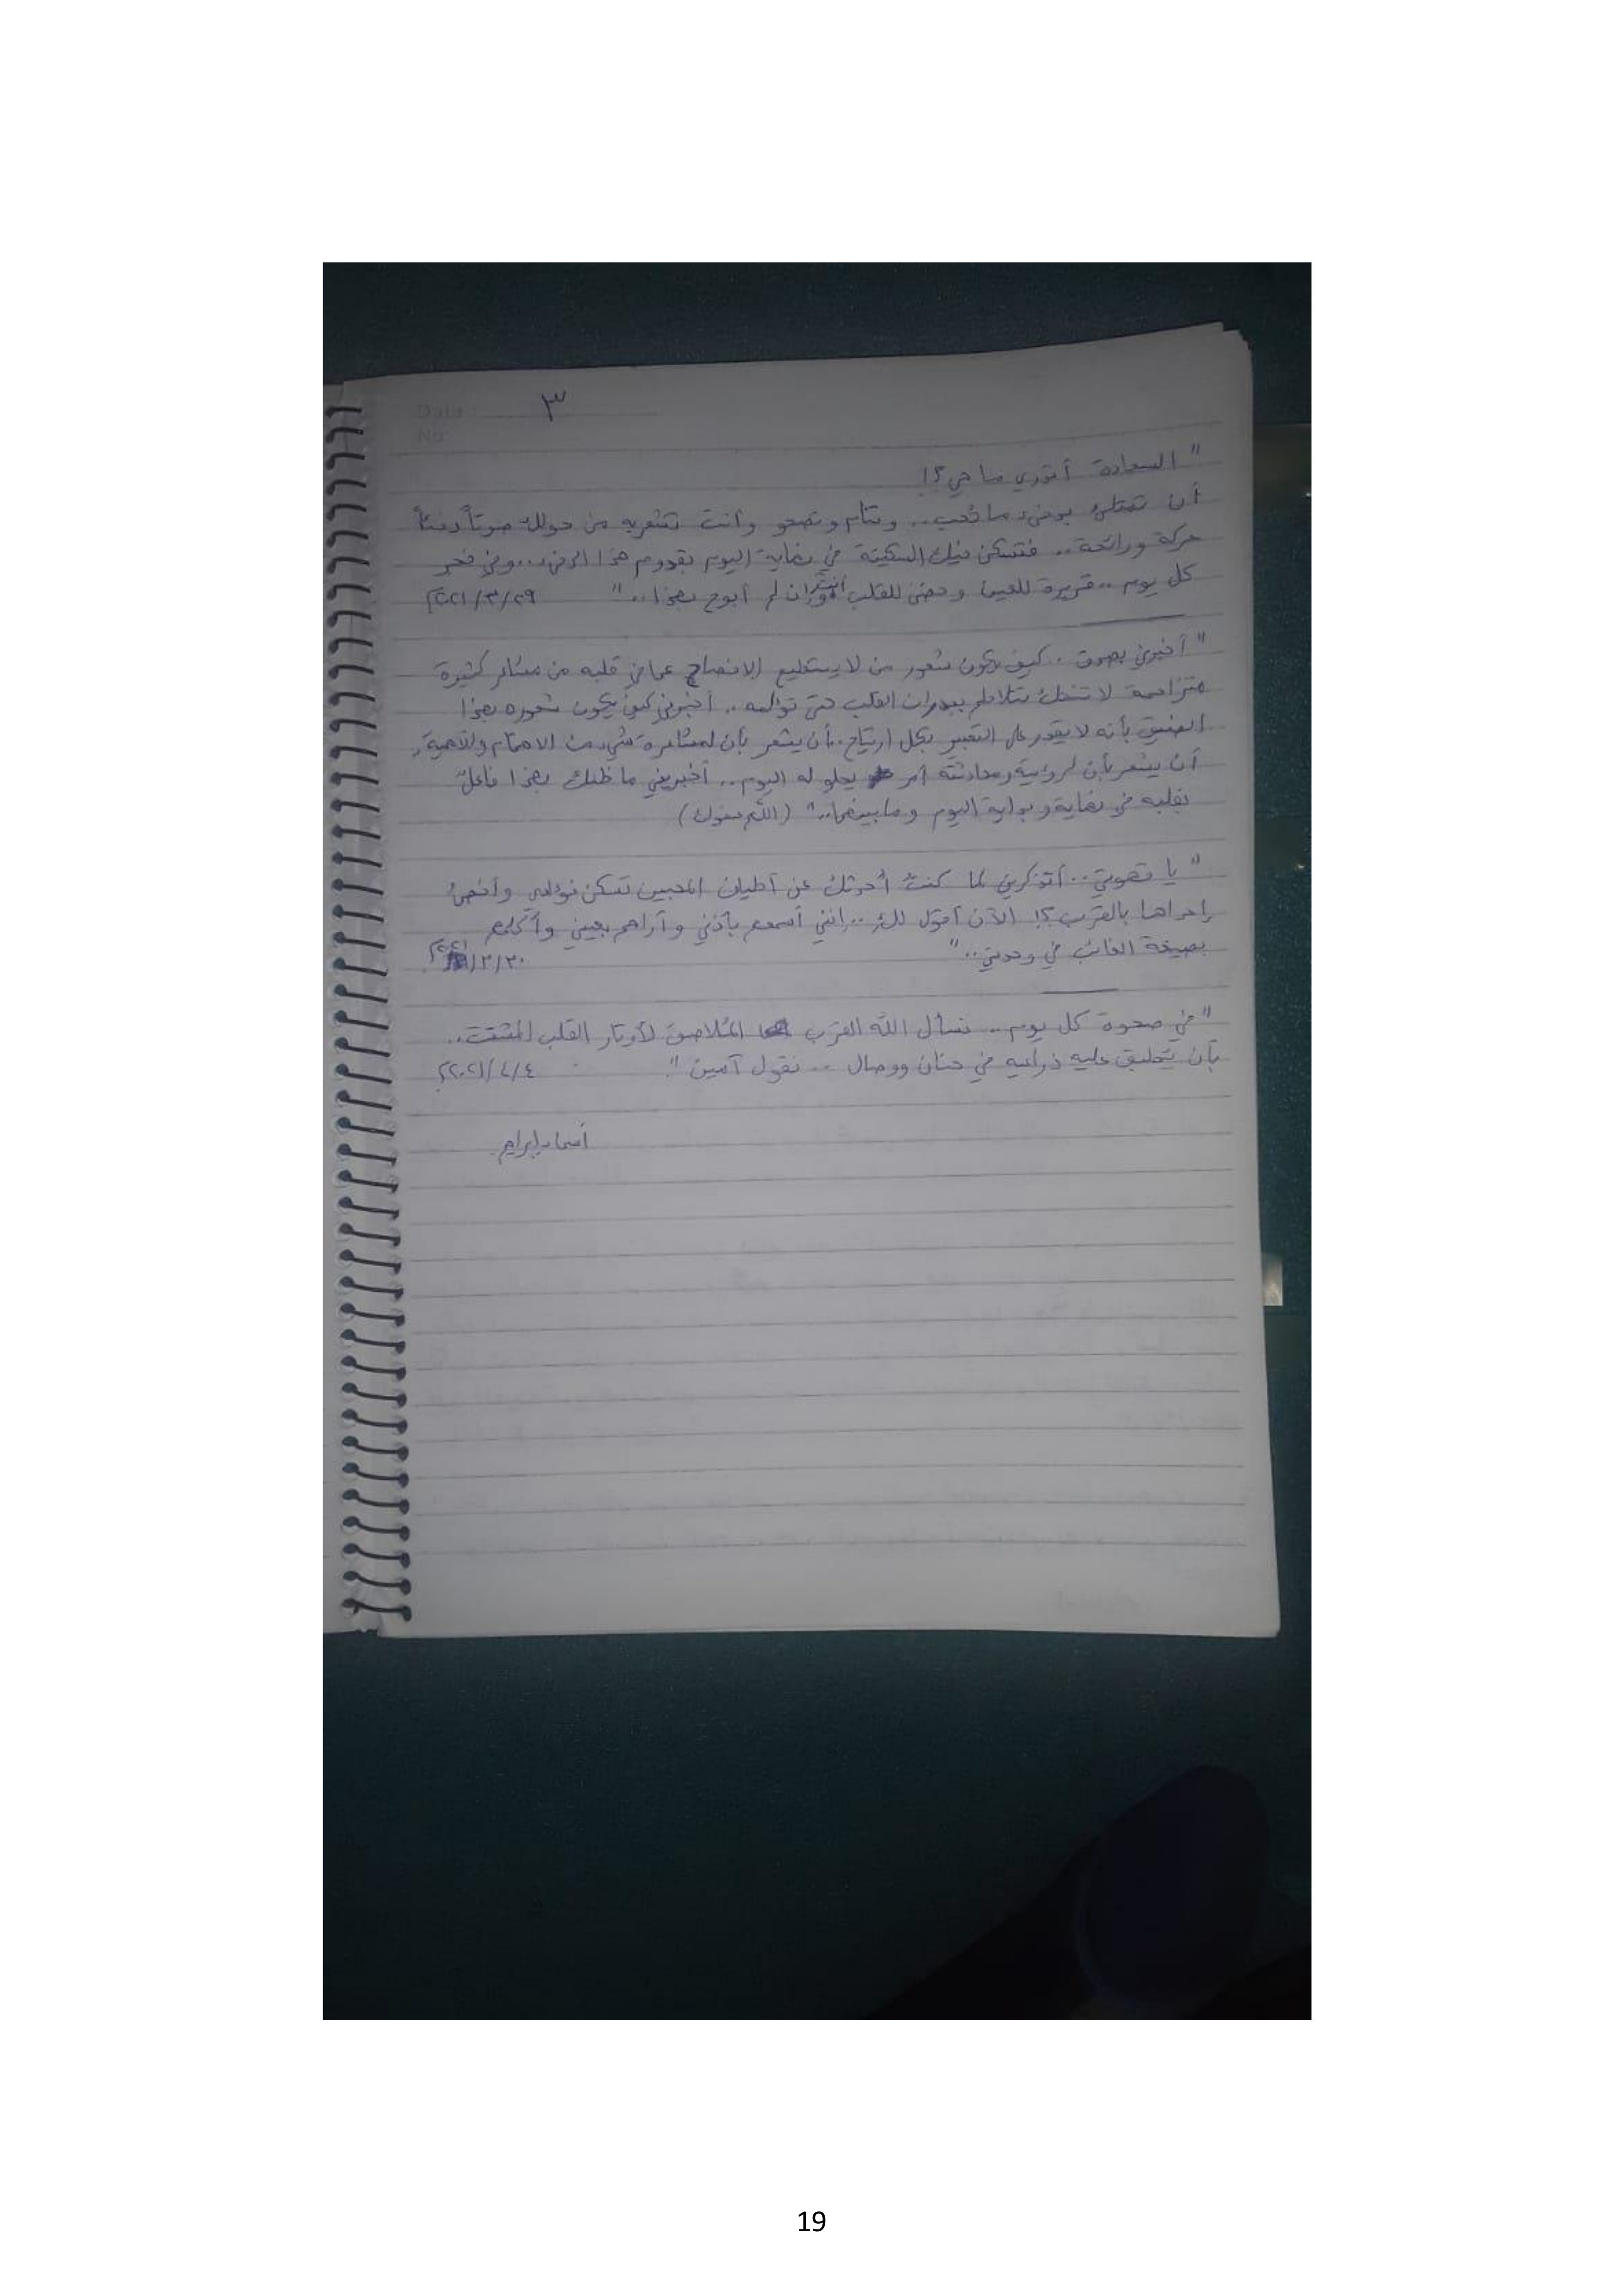 Date:
٣
No:
" السعادة أتدري ما هي؟!
أن تمتلئ بدفء ما تُحب.. وتنام وتصحو وأنت تشعر به من حولك صوتاً دفئاً
حركة ورائحة.. فتسكن فيك السكينة في نهاية اليوم بقدوم هذا الدفء.. وفي فجر
كل يوم.. قريرة للعين وحضن للقلب إن لم أبوح بهذا.. " ٢٠٢١/٣/٢٩
" أخبرني بصدق.. كيف يكون شعور من لا يستطيع الإفصاح عما في قلبه من مشاعر كثيرة
متزاحمة لا تنفك تتلاطم بجدران القلب حتى تؤلمه.. أخبرني كيف يكون شعوره بهذا
الضيق بأنه لا يقدر على التعبير بكل ارتياح.. أن يشعر بأن لمشاعره شيء من الاهتمام والأهمية،
أن يشعر بأن لرؤيته ومحادثته أمر يحلو له اليوم.. أخبريني ما ظنك بهذا فاعلٌ
بقلبه في نهاية وبداية اليوم وما بينهما.. "
" يا قهوتي.. أتذكرين لما كنتُ أحدثك عن أطياف المحبين تسكن فؤادي
إحداها بالقرب؟! الآن أقول لك.. إنني أسمعهم بأذني وأراهم بعيني وأكلمهم
بصيغة الغائب في وحدتي.. " ٣/٣٠
" في صحوة كل يوم.. نسأل الله القرب المُلاصق لأوتار القلب المشتت..
بأن يُطبق عليه ذراعيه في حنان ووصال .. نقول آمين ". ٢٠٢١/٤/٤
أسماء إبراهيم
19